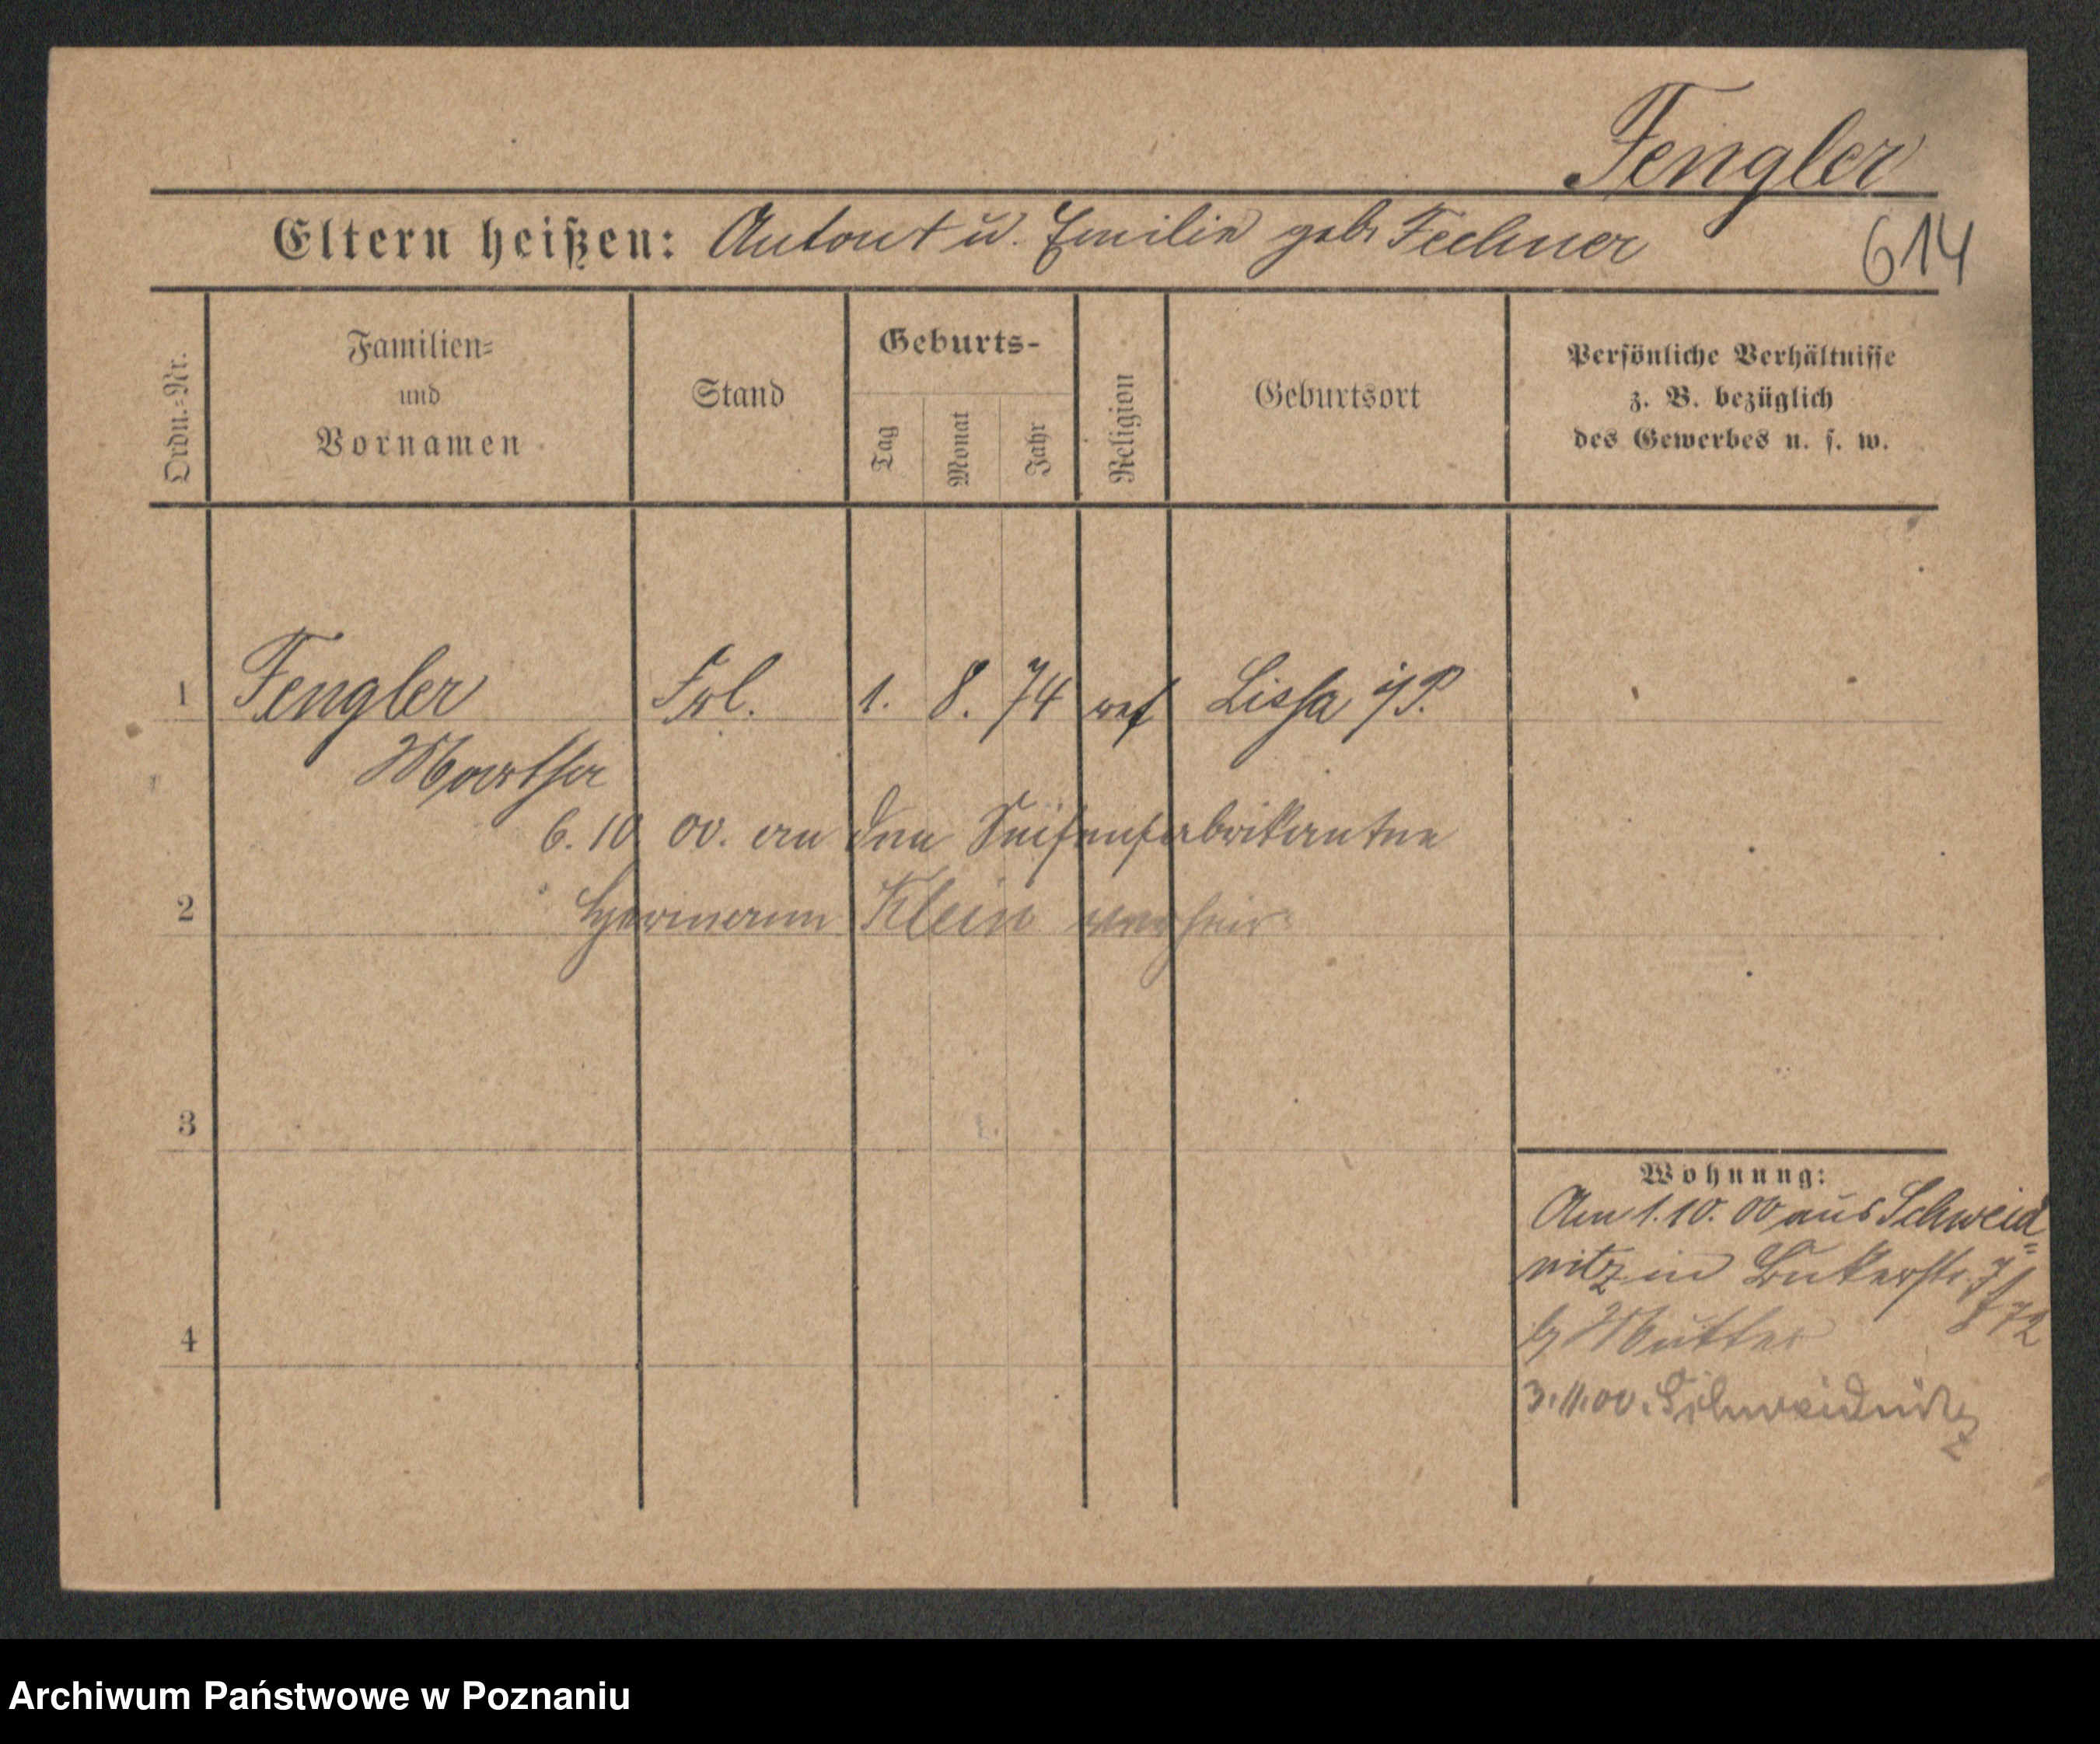 Fengler
Eltern heißen: Anton † u. Emilie geb. Fechner
614
Ordn.-Nr.
Familien-
und
Vornamen
Stand
Geburts-
Tag
Monat
Jahr
Religion
Geburtsort
Persönliche Verhältnisse
z. B. bezüglich
des Gewerbes u. s. w.
1 Fengler Frl. 1. 8. 74 ref Lissa i/P.
Martha
6. 10 00. an den Seifenfabrikanten
2 Hermann Klein verheir.
3
Wohnung:
Am 1.10.00 aus Schweid=
nitz in Bukerstr. 7
4 b/ Mutter
3.11.00. Schweidnitz
Archiwum Państwowe w Poznaniu